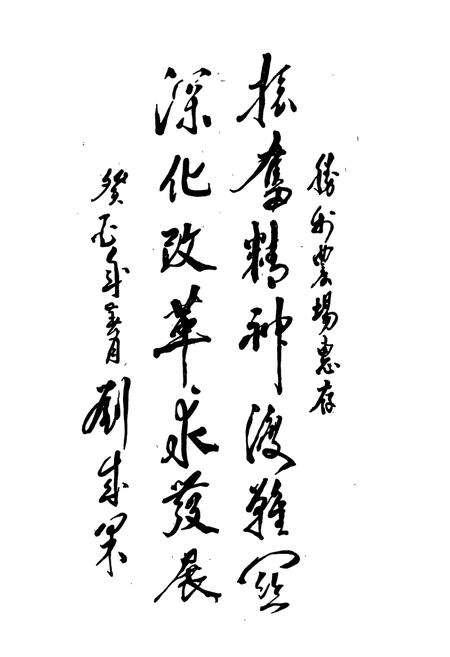 勝利農場惠存
振奮精神渡難關
深化改革求發展
癸酉年春月 劉成果